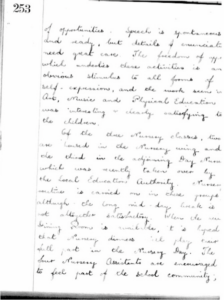 253
of opportunities. Speech is spontaneous
and ready, but details of enunciation
need great care. The freedom of
which underlies these activities is an
obvious stimulus to all forms of
self-expression, and the work seen in
Art, Music and Physical Education
was interesting & clearly satisfying to
the children.
Of the three Nursery classes, two
are housed in the Nursery wing and
the third in the adjoining Day Nursery
which was recently taken over by
the Local Education Authority.
is carried on in these groups
although the long mid-day break is
not altogether satisfactory. When the
Rooms is available, it is hoped
that Nursery dinners will play their
full part in the Nursery Day. The
Nursery Assistants are encouraged
to feel part of the school community,